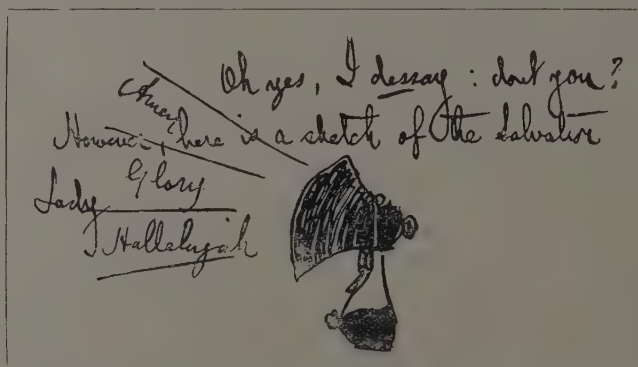 Oh yes, I dessay : don't you?
Amen
However, here is a sketch of the Salvation
Glory
Lady
Hallelujah